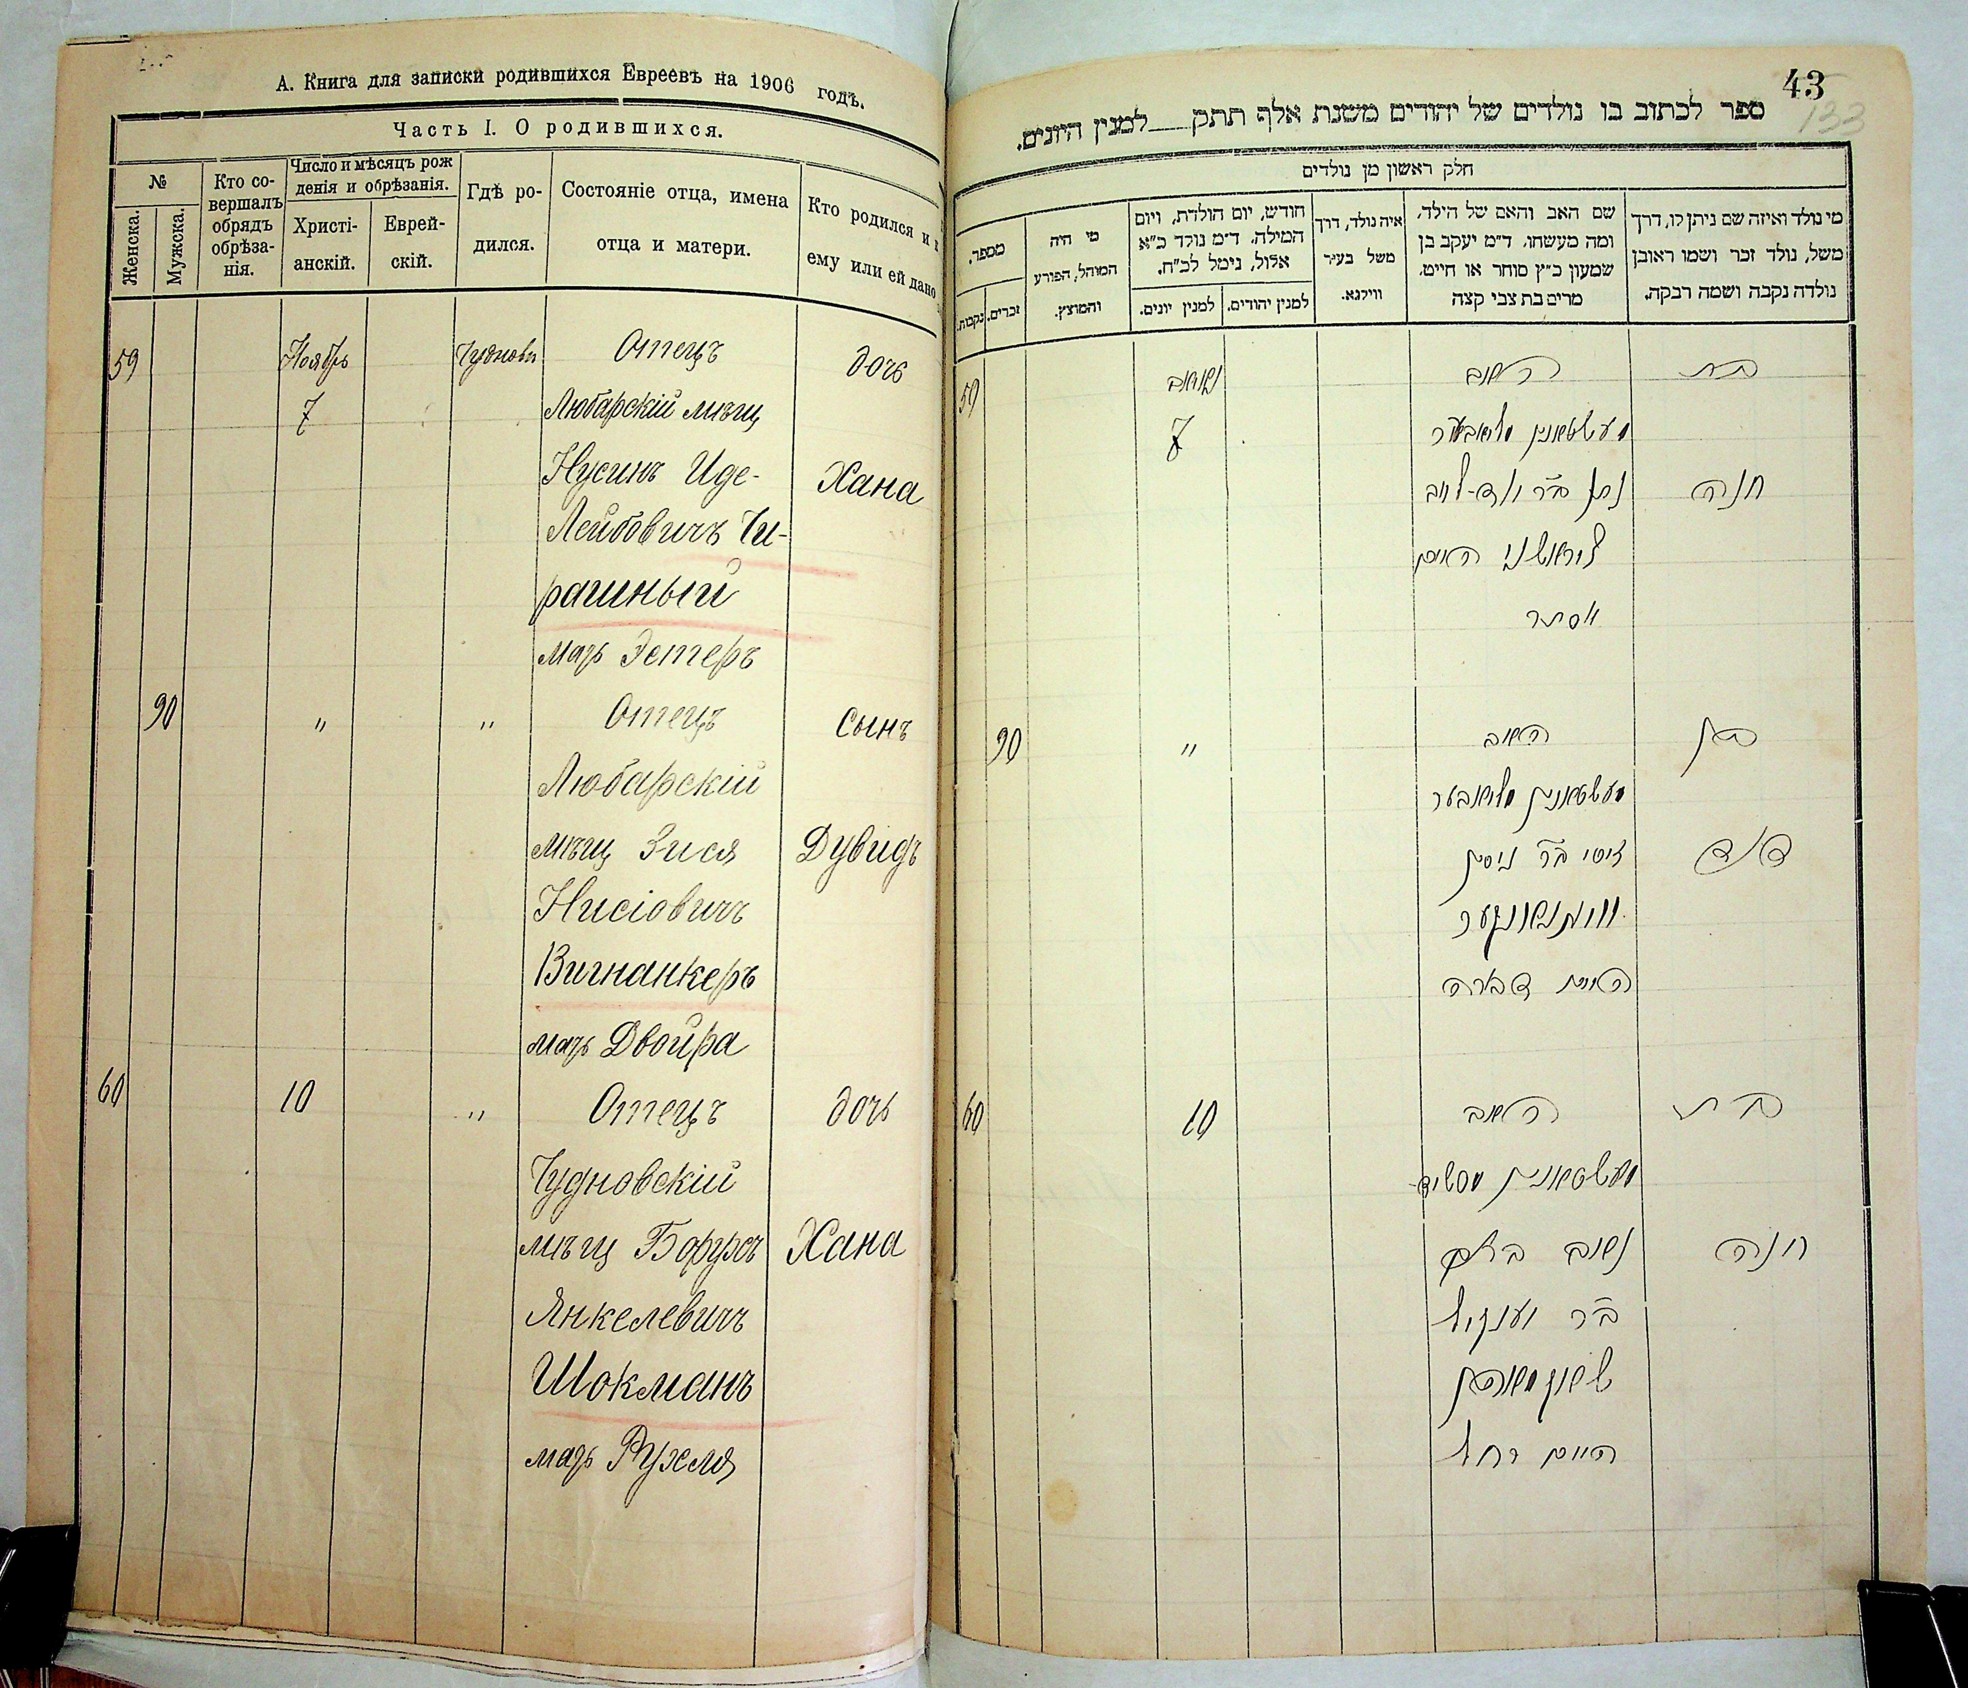 А. Книга для записки родившихся Евреевъ на 1906 годъ.
Часть I. О родившихся.
№
Женска.
Мужска.
Кто со-
вершалъ
обрядъ
обрѣза-
нія.
Число и мѣсяцъ рож
денія и обрѣзанія.
Христі-
анскій.
Еврей-
скій.
Гдѣ ро-
дился.
Состояніе отца, имена
отца и матери.
Кто родился и
ему или ей дано
59 Ноябрь Чудновъ Отецъ дочь
7 Любарскій мѣщ
Нусинъ Иде- Хана
Лейбовичъ Чи-
рашный
мать Эстеръ
90 " " Отецъ сынъ
Любарскій
мѣщ Зися Дувидъ
Нисіовичъ
Вигнанкеръ
мать Двойра
60 10 " Отецъ дочь
Чудновскій
мѣщ Борухъ Хана
Янкелевичъ
Шокманъ
мать Рухля
43
133
ספר לכתוב בו נולדים של יהודים משנת אלף תתק למנין היונים.
חלק ראשון מן נולדים
מי נולד ואיזה שם ניתן לו, דרך
משל, נולד זכר ושמו ראובן
נולדה נקבה ושמה רבקה.
שם האב והאם של הילד,
ומה מעשהו. ד״מ יעקב בן
שמעון כ״ץ סוחר או חייט.
מרים בת צבי קצה
איה נולד, דרך
משל בעיר
ווילנא.
חודש, יום הולדת, ויום
המילה. ד״מ נולד כ״א
אלול, נימל לכ״ח.
למנין יהודים.
למנין יונים.
מי היה
המוהל, הפורע
והמוצץ.
מספר.
זכרים.
נקבות.
בת האב 59
7
חנה נתן ב״ר
האם
אסתר
בן האב " 90
דוד זיסי ב״ר ניסן
האם דבורה
בת האב 10 60
חנה
ב״ר יענקיל
שאקמאן
האם רחל